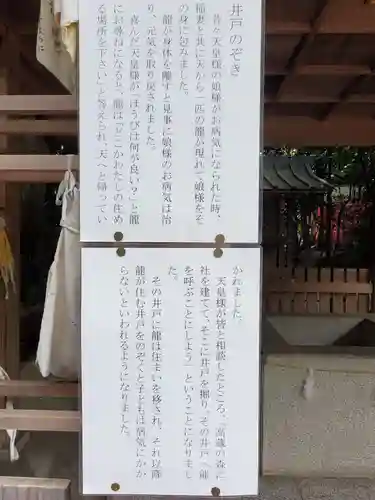 井戸のぞき
昔々天皇様の娘様がお病気になられた時、
稲妻と共に天から一匹の龍が現れて娘様をそ
の身に包みました。
龍が身体を離すと見事に娘様のお病気は治
り、元気を取り戻されました。
喜んだ天皇様が「ほうびは何が良い?」と龍
にお尋ねになると、龍は「どこかわたしの住め
る場所を下さい」と答えられ、天へと帰ってい
かれました。
天皇様が皆と相談したところ、「高蔵の森に
社を建てて、そこに井戸を掘り、その井戸へ龍
を呼ぶことにしよう」ということになりまし
た。
その井戸に龍は住まいを移され、それ以降
龍が住む井戸をのぞくと子どもは病気にかか
らないといわれるようになりました。